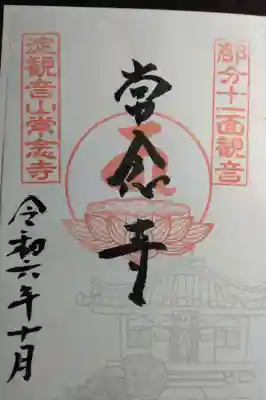 部分十一面観音
常念寺
淀観音山常念寺
令和六年十月